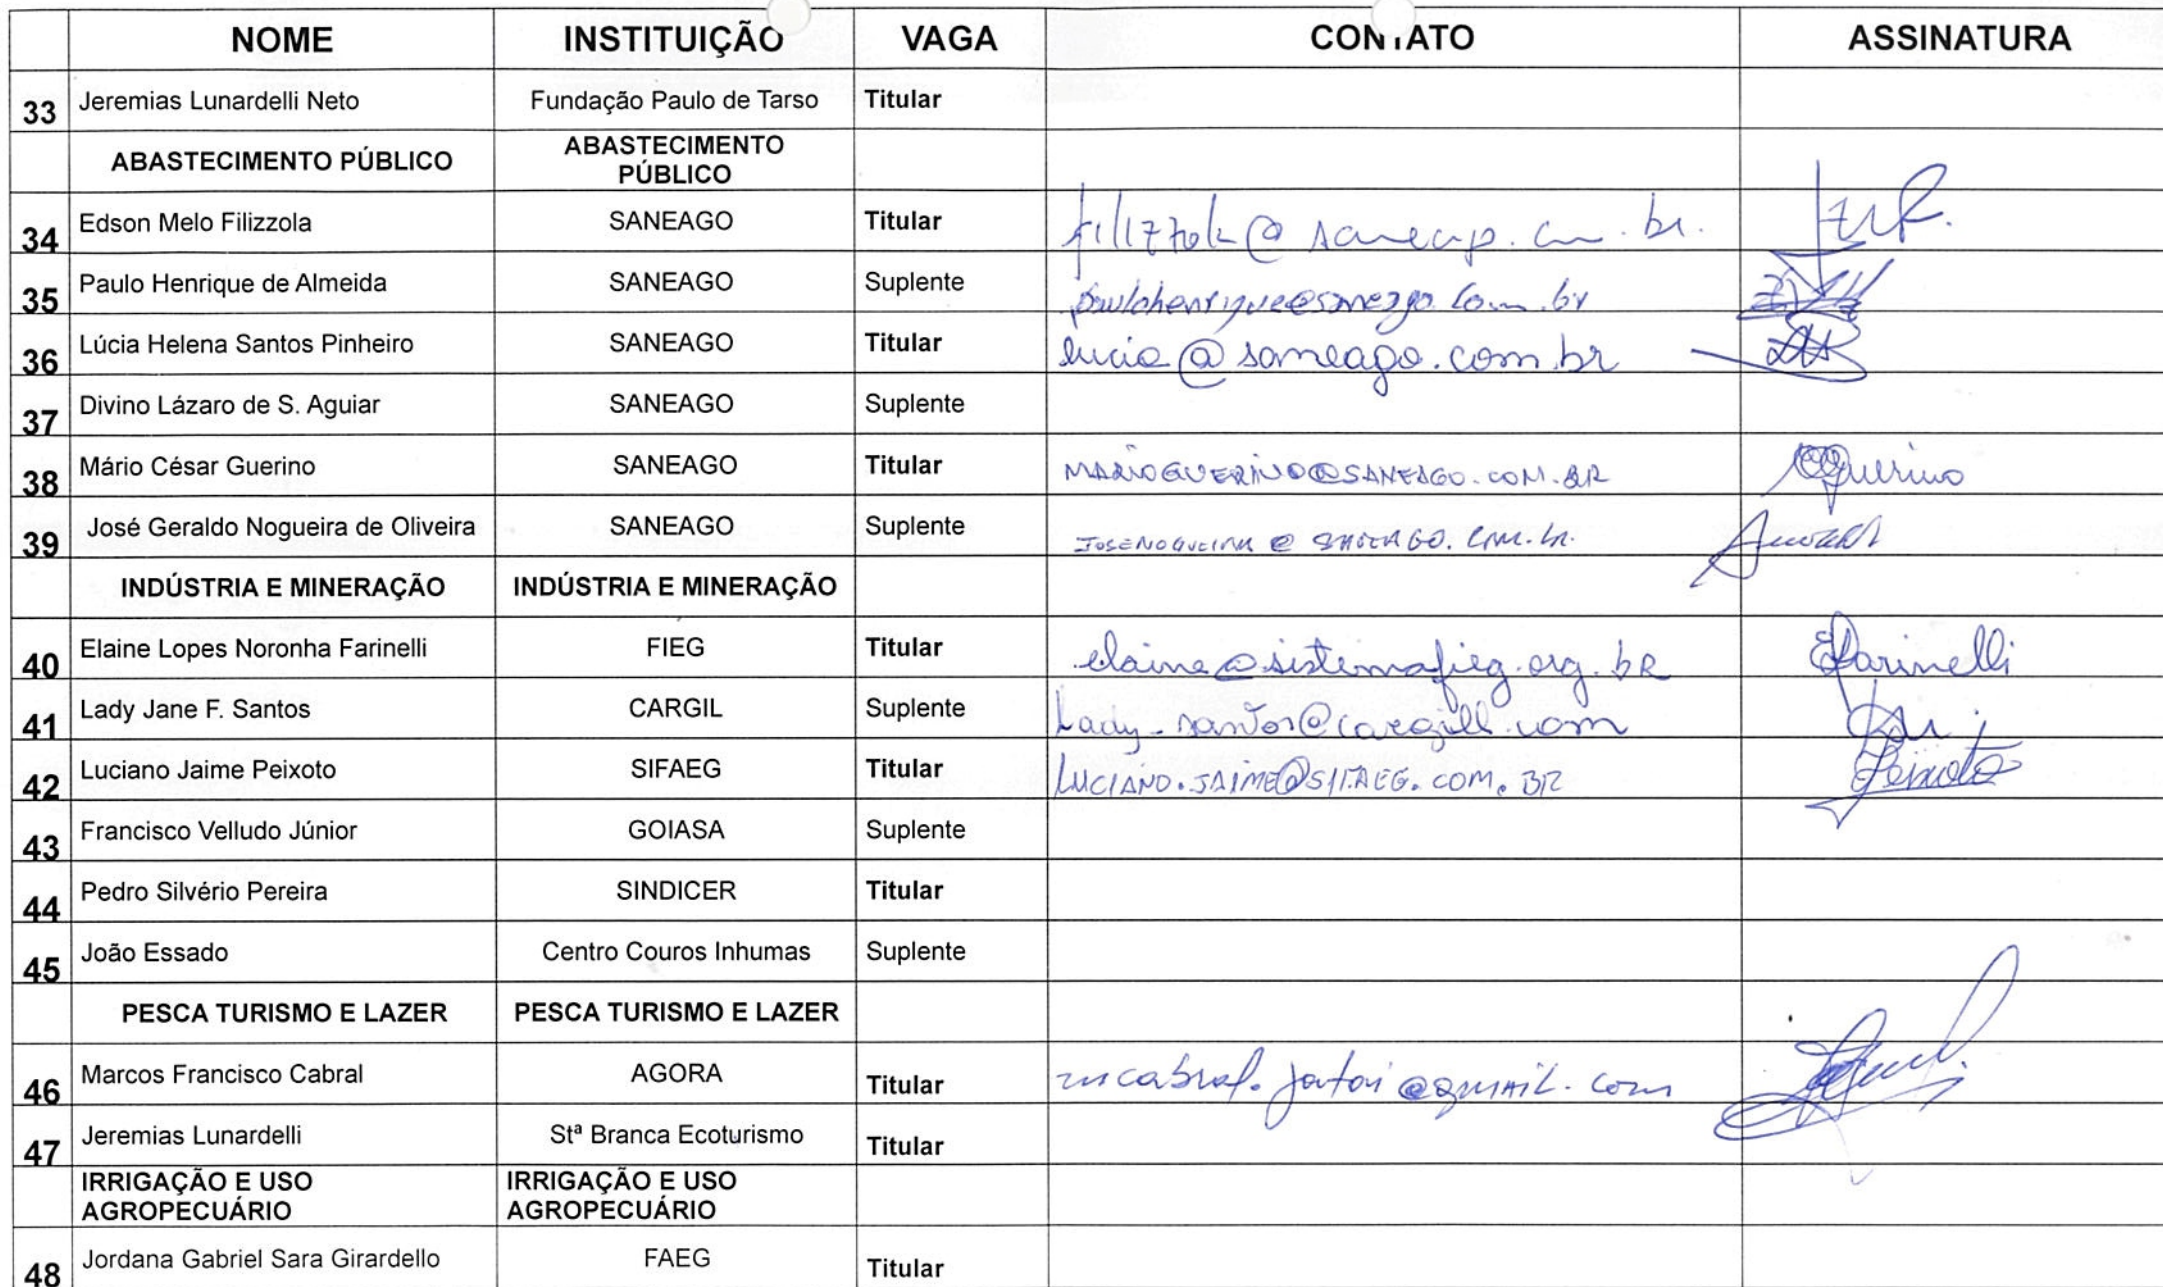 NOME INSTITUIÇÃO VAGA CONTATO ASSINATURA
33 Jeremias Lunardelli Neto Fundação Paulo de Tarso Titular
ABASTECIMENTO PÚBLICO ABASTECIMENTO
PÚBLICO
34 Edson Melo Filizzola SANEAGO Titular
35 Paulo Henrique de Almeida SANEAGO Suplente paulohenrique@saneago.com.br
36 Lúcia Helena Santos Pinheiro SANEAGO Titular lucia@saneago.com.br
37 Divino Lázaro de S. Aguiar SANEAGO Suplente
38 Mário César Guerino SANEAGO Titular MARIOGUERINO@SANEAGO.COM.BR Guerino
39 José Geraldo Nogueira de Oliveira SANEAGO Suplente
INDÚSTRIA E MINERAÇÃO INDÚSTRIA E MINERAÇÃO
40 Elaine Lopes Noronha Farinelli FIEG Titular elaine@sistemafieg.org.bR EFarinelli
41 Lady Jane F. Santos CARGIL Suplente Lady_santos@cargill.com
42 Luciano Jaime Peixoto SIFAEG Titular LUCIANO.JAIME@SIFAEG.COM.BR Peixoto
43 Francisco Velludo Júnior GOIASA Suplente
44 Pedro Silvério Pereira SINDICER Titular
45 João Essado Centro Couros Inhumas Suplente
PESCA TURISMO E LAZER PESCA TURISMO E LAZER
46 Marcos Francisco Cabral AGORA Titular mcabral.jatai@gmail.com
47 Jeremias Lunardelli Stª Branca Ecoturismo Titular
IRRIGAÇÃO E USO IRRIGAÇÃO E USO
AGROPECUÁRIO AGROPECUÁRIO
48 Jordana Gabriel Sara Girardello FAEG Titular